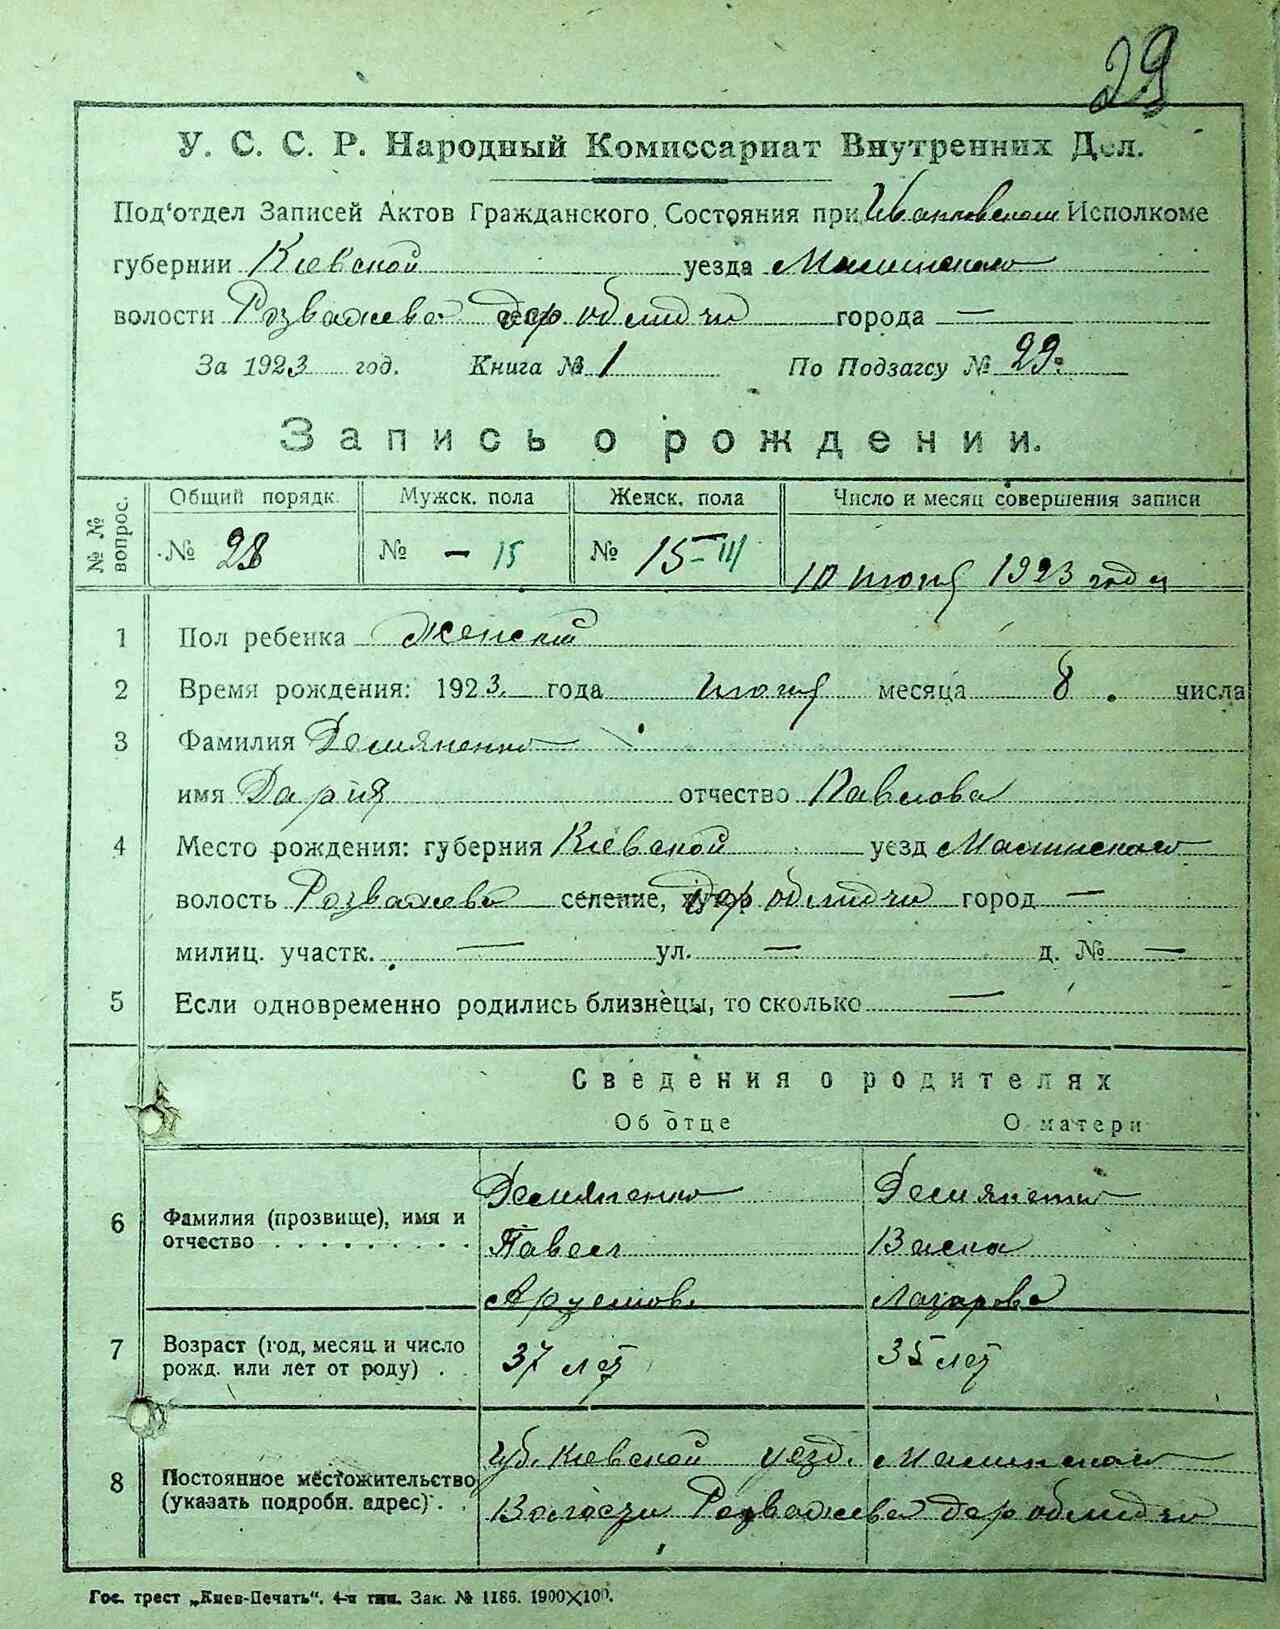 29
У. С. С. Р. Народный Комиссариат Внутренних Дел.
Под‘отдел Записей Актов Гражданского Состояния при Исполкоме
губернии Киевской уезда Малинского
волости Розважева дер облидчи города —
За 1923 год. Книга № 1 По Подзагсу № 29.
Запись о рождении.
№ № вопрос. Общий порядк. Мужск. пола Женск. пола Число и месяц совершения записи
№ 28 № – 15 № 15–III 10 июня 1923 года
1 Пол ребенка женский
2 Время рождения: 1923 года июня месяца 8. числа
3 Фамилия Демяненко
имя Дария отчество Павлова
4 Место рождения: губерния Киевской уезд Малинского
волость Розважева селение, дер облидчи город —
милиц. участк. — ул. — д. № —
5 Если одновременно родились близнецы, то сколько —
Сведения о родителях
Об отце О матери
6 Фамилия (прозвище), имя и отчество Демяненко Демяненко
Павел
Лазарова
7 Возраст (год, месяц и число рожд. или лет от роду) 37 лет 35 лет
8 Постоянное местожительство (указать подробн. адрес) Губ. Киевской уезд. Малинского
Волости Розважева дер облидчи
Гос. трест „Киев-Печать“. 4-я тип. Зак. № 1186. 1900×100.